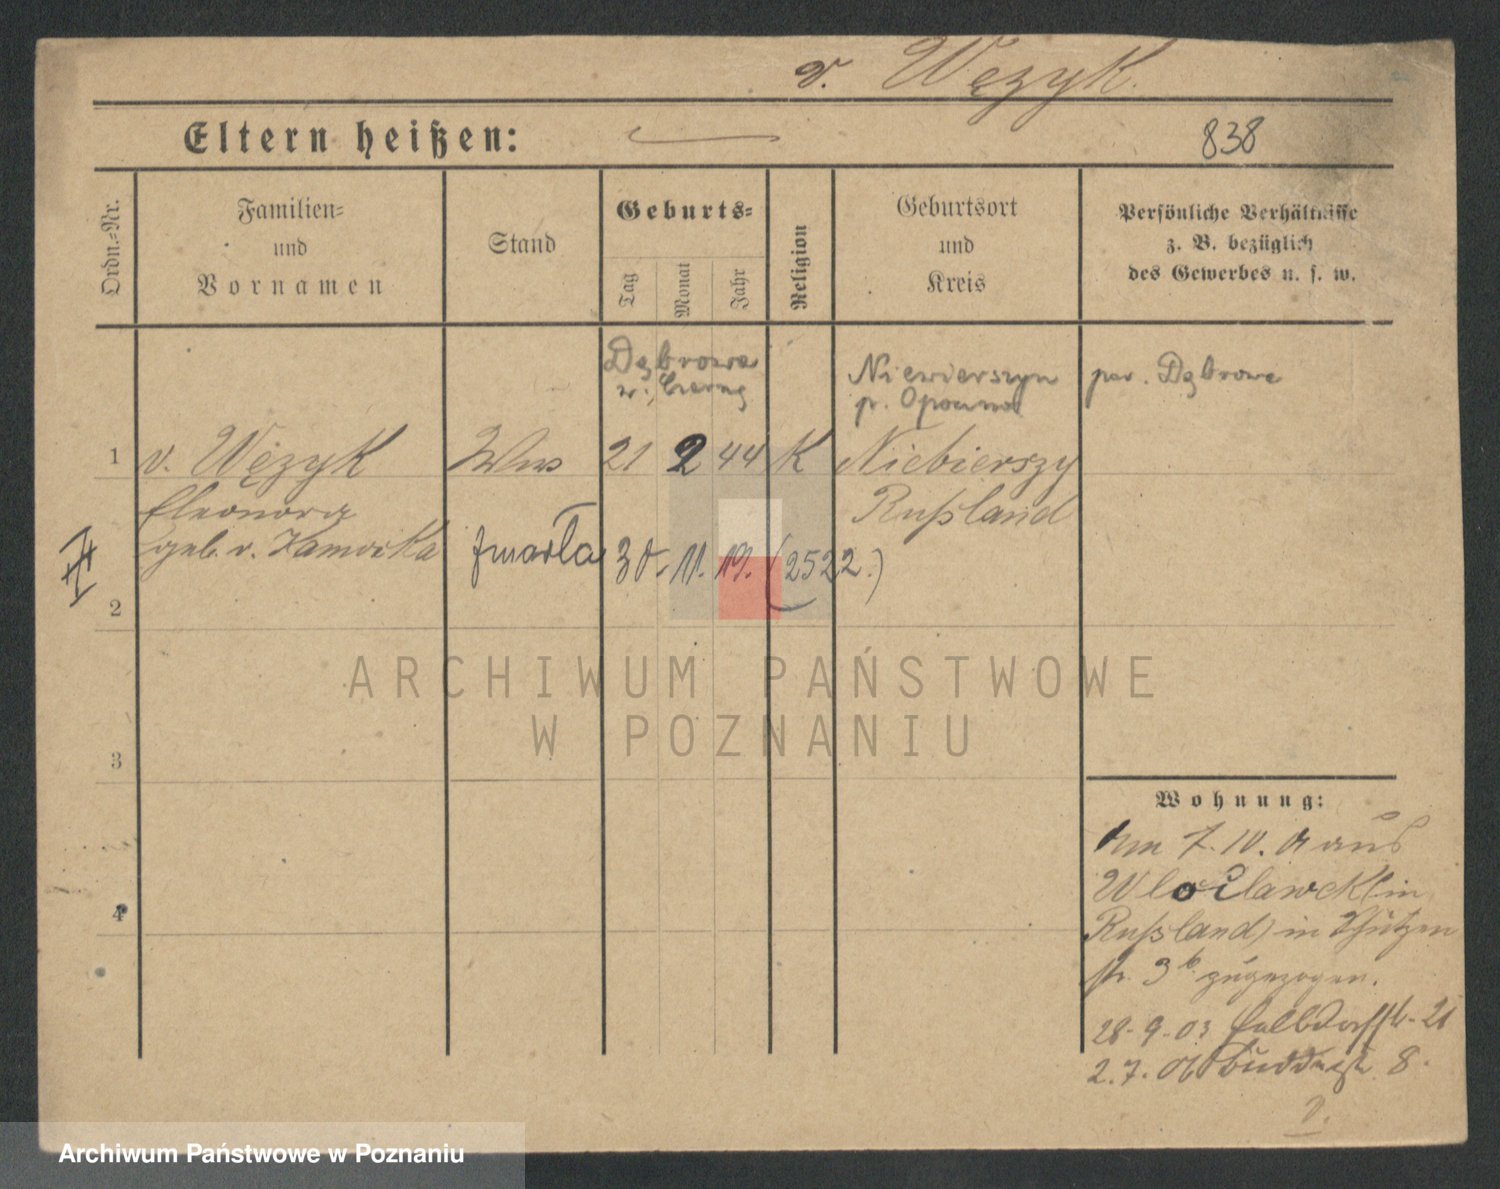 v. Wężyk.
Eltern heißen:
838
Ordn.-Nr.
Familien-
und
Vornamen
Stand
Geburts-
Tag
Monat
Jahr
Religion
Geburtsort
und
Kreis
Persönliche Verhältnisse
z. B. bezüglich
des Gewerbes u. s. w.
Dąbrowa
Niewierszyn
p. Opoczno
par. Dąbrowa
1 v. Wężyk Ww 21 2 44 K Niebierszy
Eleonora Rußland
geb. v. zmarła 30. 11. 19. (2522.)
2
3
4
Wohnung:
Am 7. 10. 01 aus
Wloclawek (in
Rußland) in Schützen
str. 3b zugezogen.
28-9-03 Halbdorfstr-21
2.7.06 Buddestr 8.
ARCHIWUM PAŃSTWOWE
W POZNANIU
Archiwum Państwowe w Poznaniu